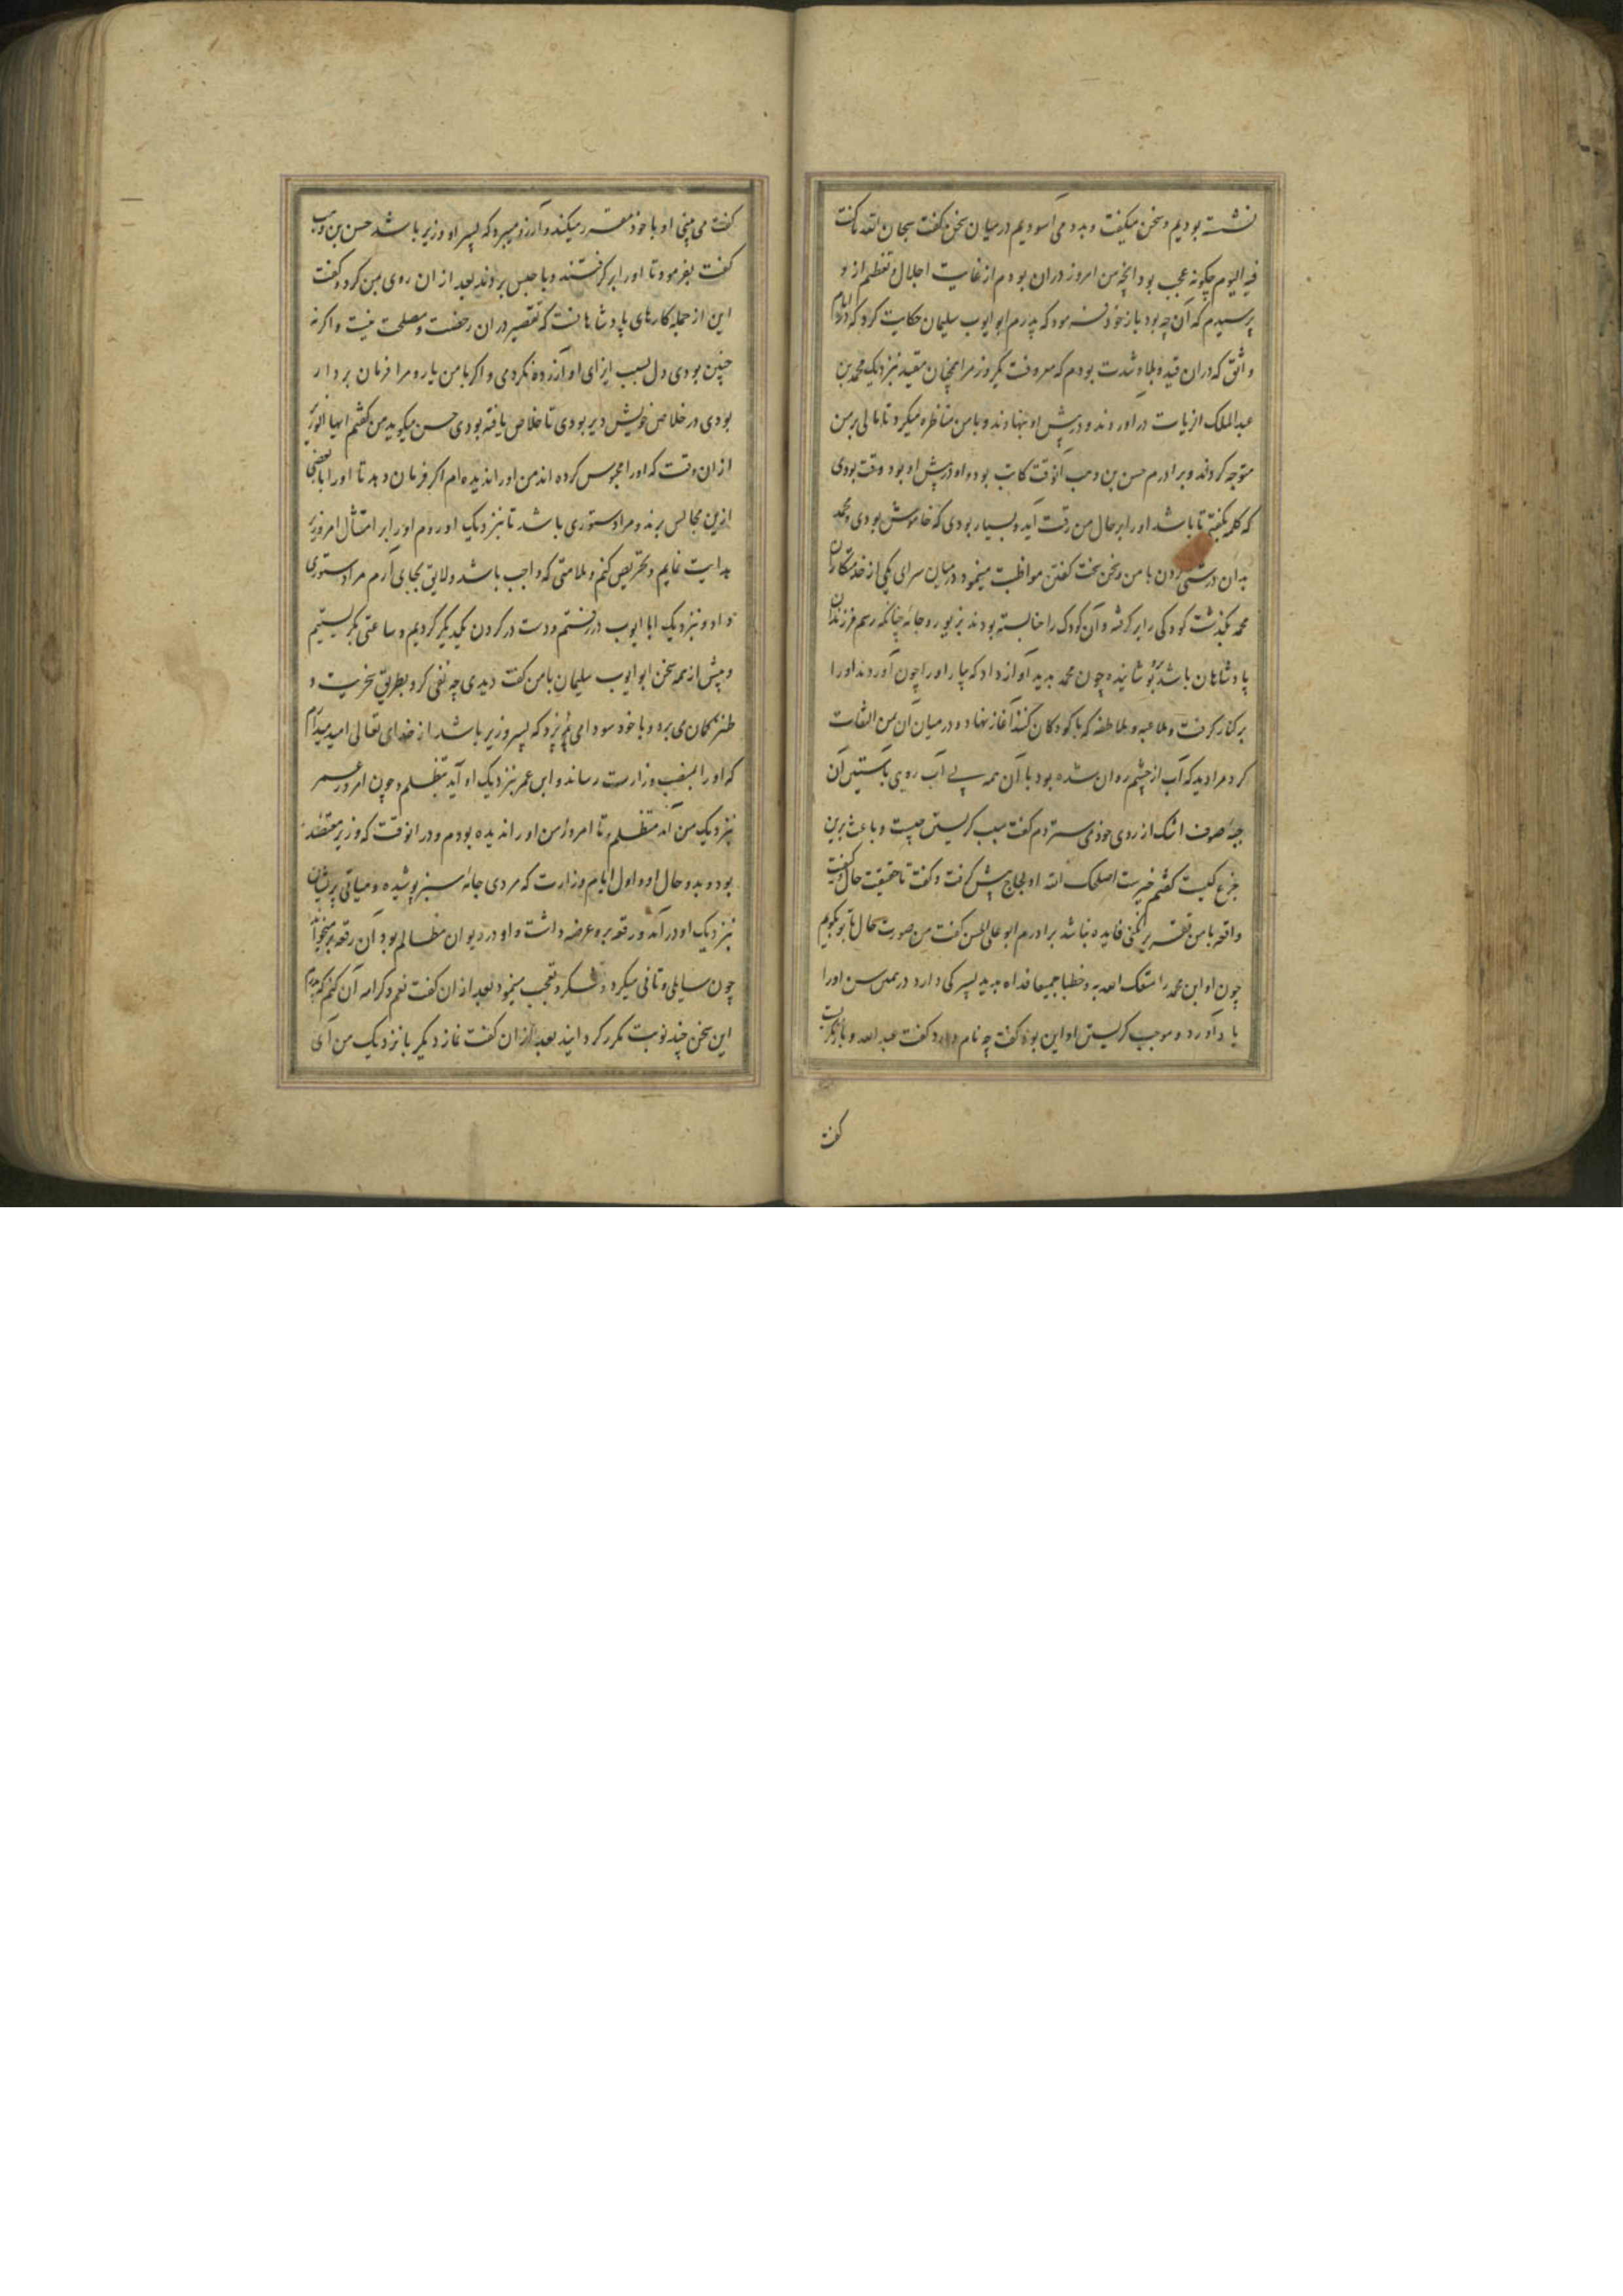 نشسته بودیم و سخن میگفت و بدو می آسودیم در میان سخن گفت سبحان الله ما کنت
فیه الیوم چگونه عجب بود انچه من امروز دران بودم از غایت اجلال و تعظیم از و
پرسیدم که آن چه بود باز خود فرمود که پدرم ابو ایوب سلیمان حکایت کرد که در ایام
واثق که دران قید و بلا و شدت بودم که معروفست یکروز مرا همچنان مقید نزدیک محمد بن
عبدالملک الزیات در آوردند و در پیش او بنهادند و با من مناظره میکرد تا مالی بر من
متوجه گرداند و برادرم حسن بن وهب آنوقت کاتب بود و او در پیش او بود وقت بودی
که کلمه بگفتی تا باشد او را بر حال من رقت آید و بسیار بودی که خاموش بودی و محمد
بدان درشتی کردن با من و سخن سخت گفتن مواظبت مینمود در میان سرای یکی از خدمتکاران
محمد بگذشت کودکی را بر گرفته و آن کودک را حنا بسته بودند بزیور و جامه چنانکه رسم فرزندان
پادشاهان باشد پوشانیده چون محمد بدید آواز داد که بیار او را چون آوردند او را
بر کنار گرفت و ملاعبه و ملاطفه که با کودکان کنند آغاز نهاد و در میان آن بمن التفات
کرد مرا دید که آب از چشم روان شده بود با آن همه بی آب رویی باستین آن
جبه صوف اشک از روی خود می ستردم گفت سبب گریستن چیست و باعث برین
جزع کیست گفتم خیرست اصلحک الله او لجاج پیش گرفت و گفت تا حقیقت حال و کیفیت
واقعه با من تقریر نکنی فایده نباشد برادرم ابو علی الحسن گفت من صورت حال با تو بگویم
چون او ابن محمد را متعک الله به و خطبا جمیعا فداه بدید پسرکی دارد در همین سن او را
یاد آورد و موجب گریستن او این بود گفت چه نام دارد گفت عبد الله و باز نگریست
گفت
گفت می بینی او با خود مقرر میکند و آرزو میبرد که پسر او وزیر باشد حسن بن وهب
گفت بفرمود تا او را بر گرفتند و با حبس بردند بعد از ان روی بمن کرد و گفت
این از جمله کارهای پادشاهانست که تقصیر در ان رخصت و مصلحت نیست و اگر نه
چنین بودی دل بسبب ایزای او آزرده نکردمی و اگر با من یار و مرا فرمان بردار
بودی در خلاص خویش دیر بودی تا خلاص یافته بودی حسن میگوید من گفتم ایها الوزیر
از ان وقت که او را محبوس کرده اند من او را ندیده ام اگر فرمان دهد تا او را با بعضی
ازین مجالس برند و مرا دستوری باشد تا نزدیک او روم او را بر امتثال امر وزیر
هدایت نمایم و تحریض کنم و ملامتی که واجب باشد و لایق بجای آرم مرا دستوری
داد و نزدیک ابا ایوب در رفتم و دست در گردن یکدیگر کردیم و ساعتی بگریستیم
و پیش از همه سخن ابو ایوب سلیمان با من گفت دیدی چه نفی کرد بطریق سخریت و
طنز گمان می برد و با خود سودا می پزد که پسر وزیر باشد از خدای تعالی امید میدارم
که او را بمنصب وزارت رساند و ابن عمر نزدیک او آید بتظلم و چون امروز عمر
نزدیک من آمد متظلم تا امروز من او را ندیده بودم و در انوقت که وزیر معتضد
بود و بدو حال او و اول ایام وزارت که مردی جامه سبز پوشیده و هیاتی پریشان
نزدیک او در آمد و رقعه برو عرضه داشت و او در دیوان مظالم بود آن رقعه بر میخواند
چون سایلی و تانی میکرد و تفکر و تعجب مینمود بعد از ان گفت نعم و کرامه آن کنم که پدرم
این سخن چند نوبت مکرر گردانید بعد از ان گفت نماز دیگر با نزدیک من آی